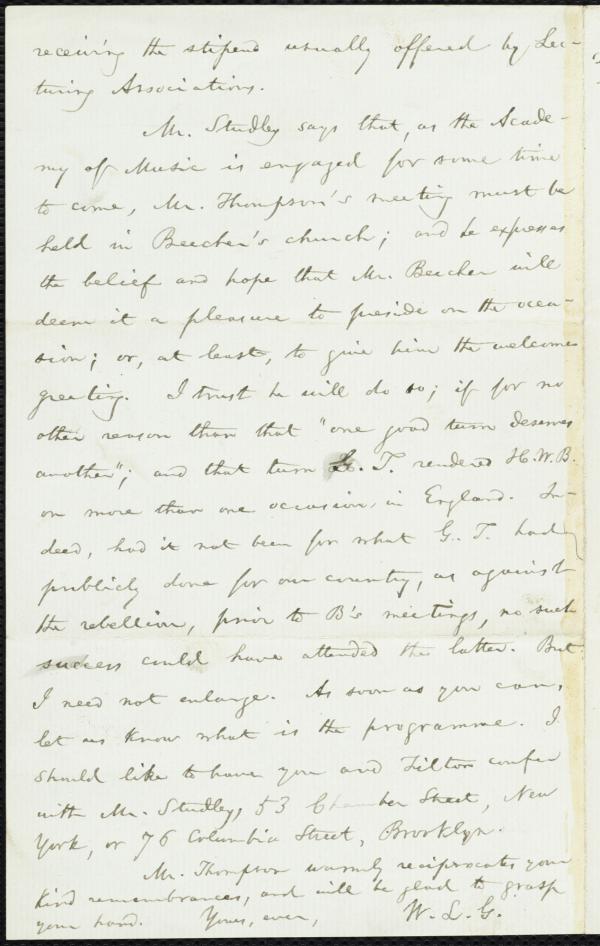 receiving the stipend usually offered by Lec-
turing Associations.
Mr. Studley says that, as the Acade-
my of Music is engaged for some time
to come, Mr. Thompson's meeting must be
held in Beecher's church; and he expresses
the belief and hope that Mr. Beecher will
deem it a pleasure to preside on the occa-
sion; or, at least, to give him the welcome
greeting. I trust he will do so; if for no
other reason than that "one good turn deserves
another"; and that turn G. T. rendered H.W.B.
on more than one occasion, in England. In-
deed, had it not been for what G. T. had
publicly done for our country, as against
the rebellion, prior to B's meetings, no such
success could have attended the latter. But
I need not enlarge. As soon as you can,
let us know what is the programme. I
should like to have you and Tilton confer
with Mr. Studley, 53 Chamber Street, New
York, or 76 Columbia Street, Brooklyn.
Mr. Thompson warmly reciprocates your
kind remembrances, and will be glad to grasp
your hand. Yours, ever, W. L. G.